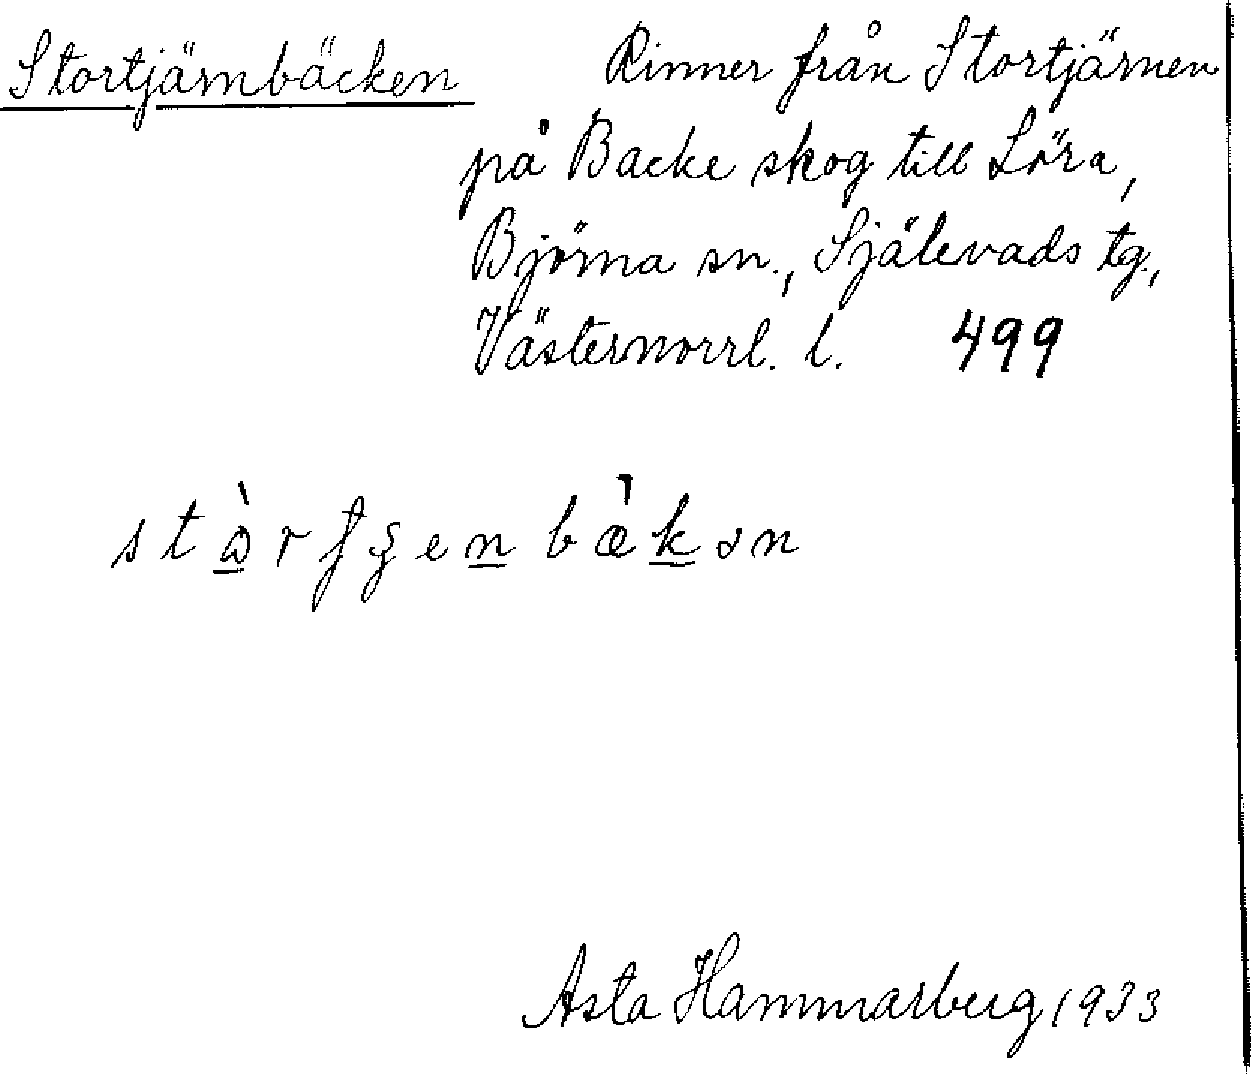 Stortjärnbäcken Rinner från Stortjärnen
på Backe skog till Löra,
Björna sn., Själevads tg.,
Västernorrl. l. 499
Asta Hammarberg 1933